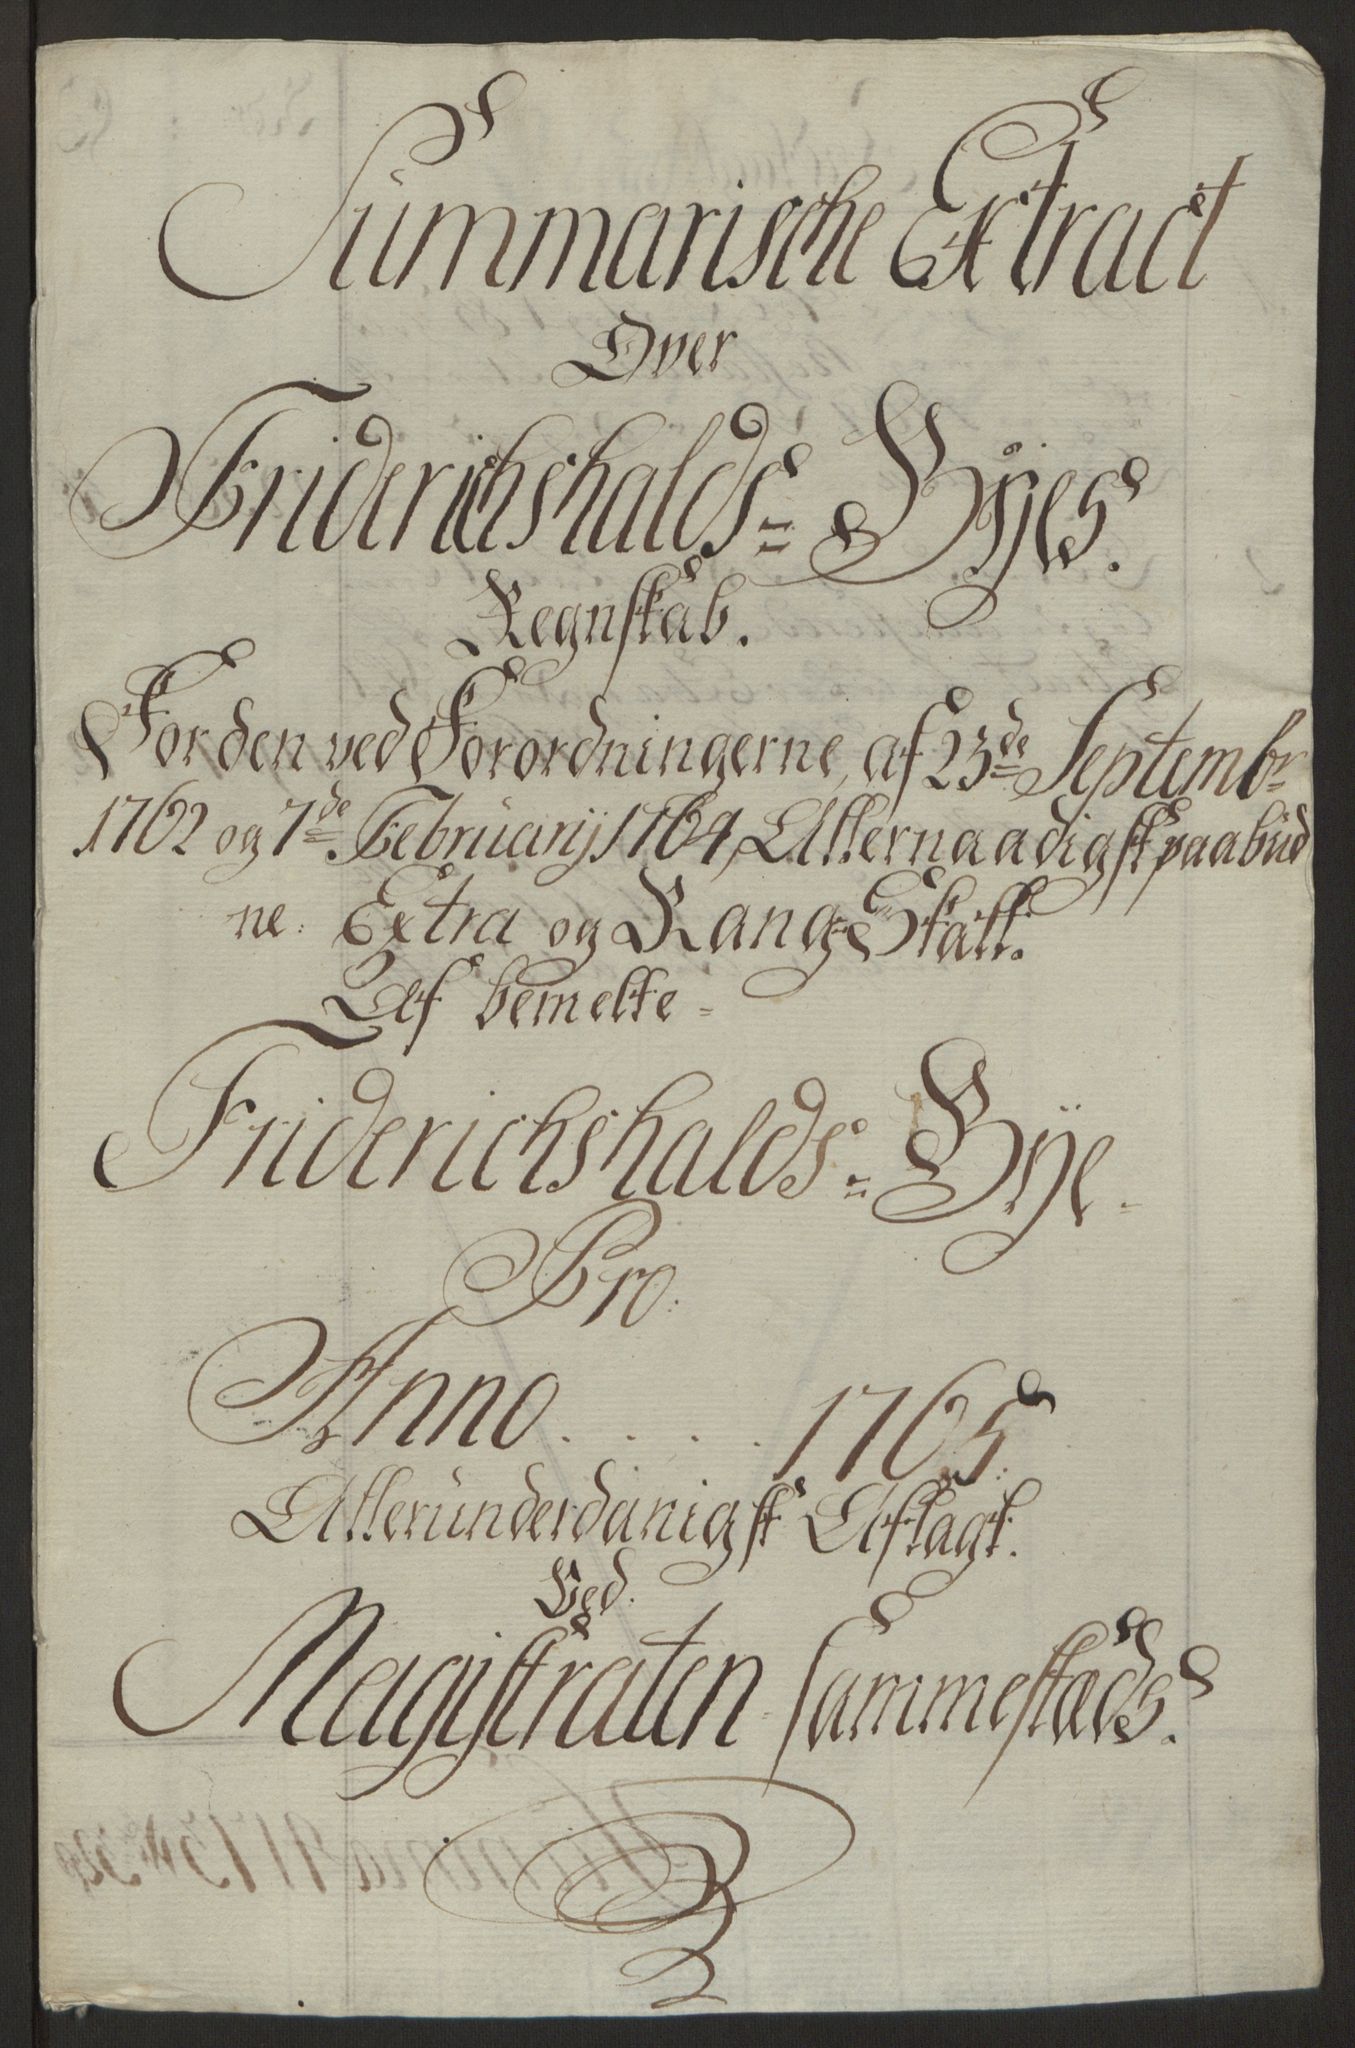 Summarische Extract
Over
Friderichshalds= Byes.
Regnskab.
For den ved Forordningerne, af 23de Septembr
1762 og 7de Februarij 1764, Allernaadigst paabud
ne: Extra og Rang=Skatt.
Af bemelte=
Friderichshalds= Bÿe.
Pro.
Anno.....1765.
Allerunderdanigst Aflagt.
Ved.
Magistraten sammestæds.